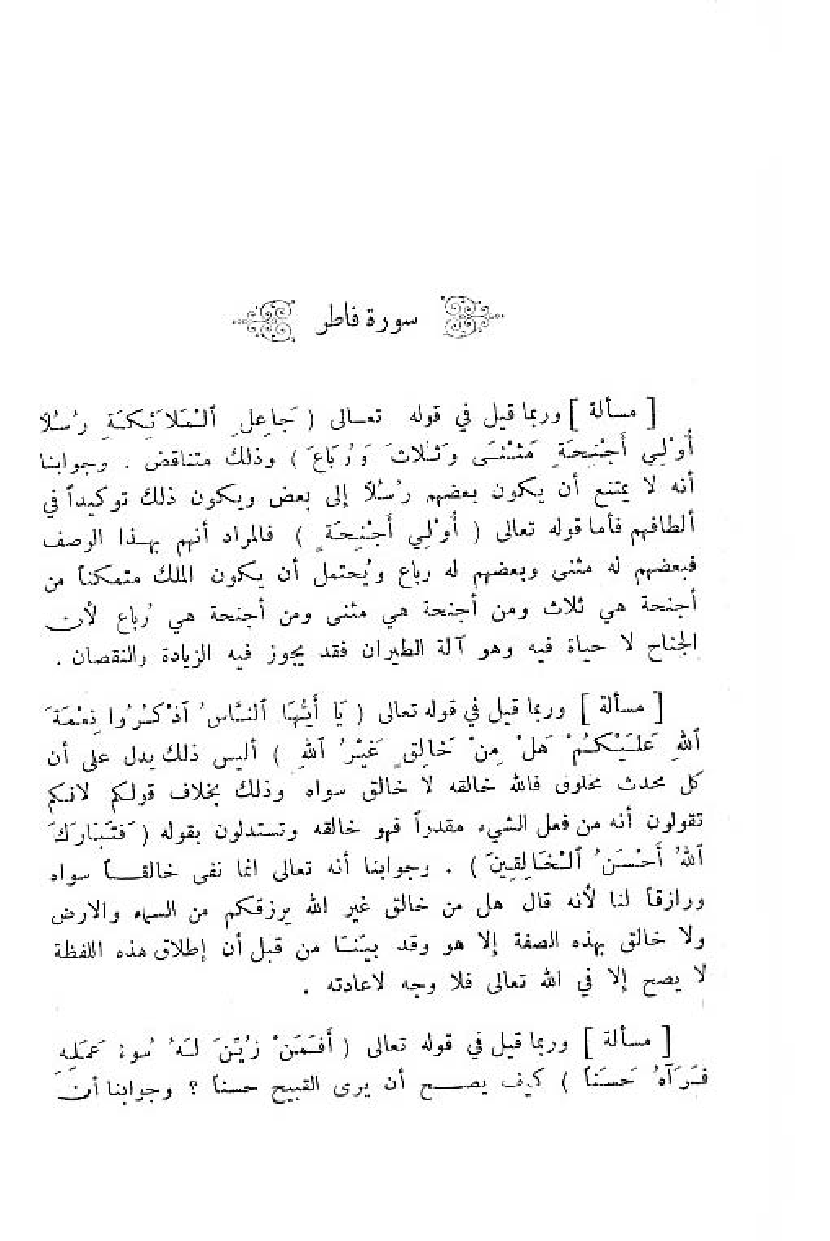 سورة فاطر
[ مسألة ] وربما قيل في قوله تعـالى ( جَاعِلِ ٱلْمَلَائِكَةِ رُسُلاً
أُوْلِي أَجْنِحَةٍ مَثْنَى وَثُلَاثَ وَرُبَاعَ ) وذلك متناقض . وجوابنا
أنه لا يمتنع أن يكون بعضهم رُسُلاً إلى بعض ويكون ذلك توكيداً في
ألطافهم فأما قوله تعالى ( أُوْلِي أَجْنِحَةٍ ) فالمراد أنهم بهـذا الوصف
فبعضهم له مثنى وبعضهم له رباع ويُحتمل أن يكون الملك متمكناً من
أجنحة هي ثلاث ومن أجنحة هي مثنى ومن أجنحة هي رُباع لأن
الجناح لا حياة فيه وهو آلة الطيران فقد يجوز فيه الزيادة والنقصان .
[ مسألة ] وربما قيل في قوله تعالى ( يَا أَيُّهَا ٱلنَّاسُ ٱذْكُرُوا نِعْمَةَ
ٱللهِ عَلَيْكُمْ هَلْ مِنْ خَالِقٍ غَيْرُ ٱللهِ ) أليس ذلك يدل على أن
كل محدث مخلوق فالله خالقه لا خالق سواه وذلك بخلاف قولكم لانكم
تقولون أنه من فعل الشيء مقدراً فهو خالقه وتستدلون بقوله ( فَتَبَارَكَ
ٱللهُ أَحْسَنُ ٱلْخَالِقِينَ ) . وجوابنا أنه تعالى انما نفى خالقـــاً سواه
ورازقاً لنا لأنه قال هل من خالق غير الله يرزقكم من السماء والارض
ولا خالق بهذه الصفة إلا هو وقد بيّنا من قبل أن إطلاق هذه اللفظة
لا يصح إلا في الله تعالى فلا وجه لاعادته .
[ مسألة ] وربما قيل في قوله تعالى ( أَفَمَنْ زُيِّنَ لَهُ سُوءُ عَمَلِهِ
فَرَآهُ حَسَناً ) كيف يصـــح أن يرى القبيح حسناً ؟ وجوابنا أن